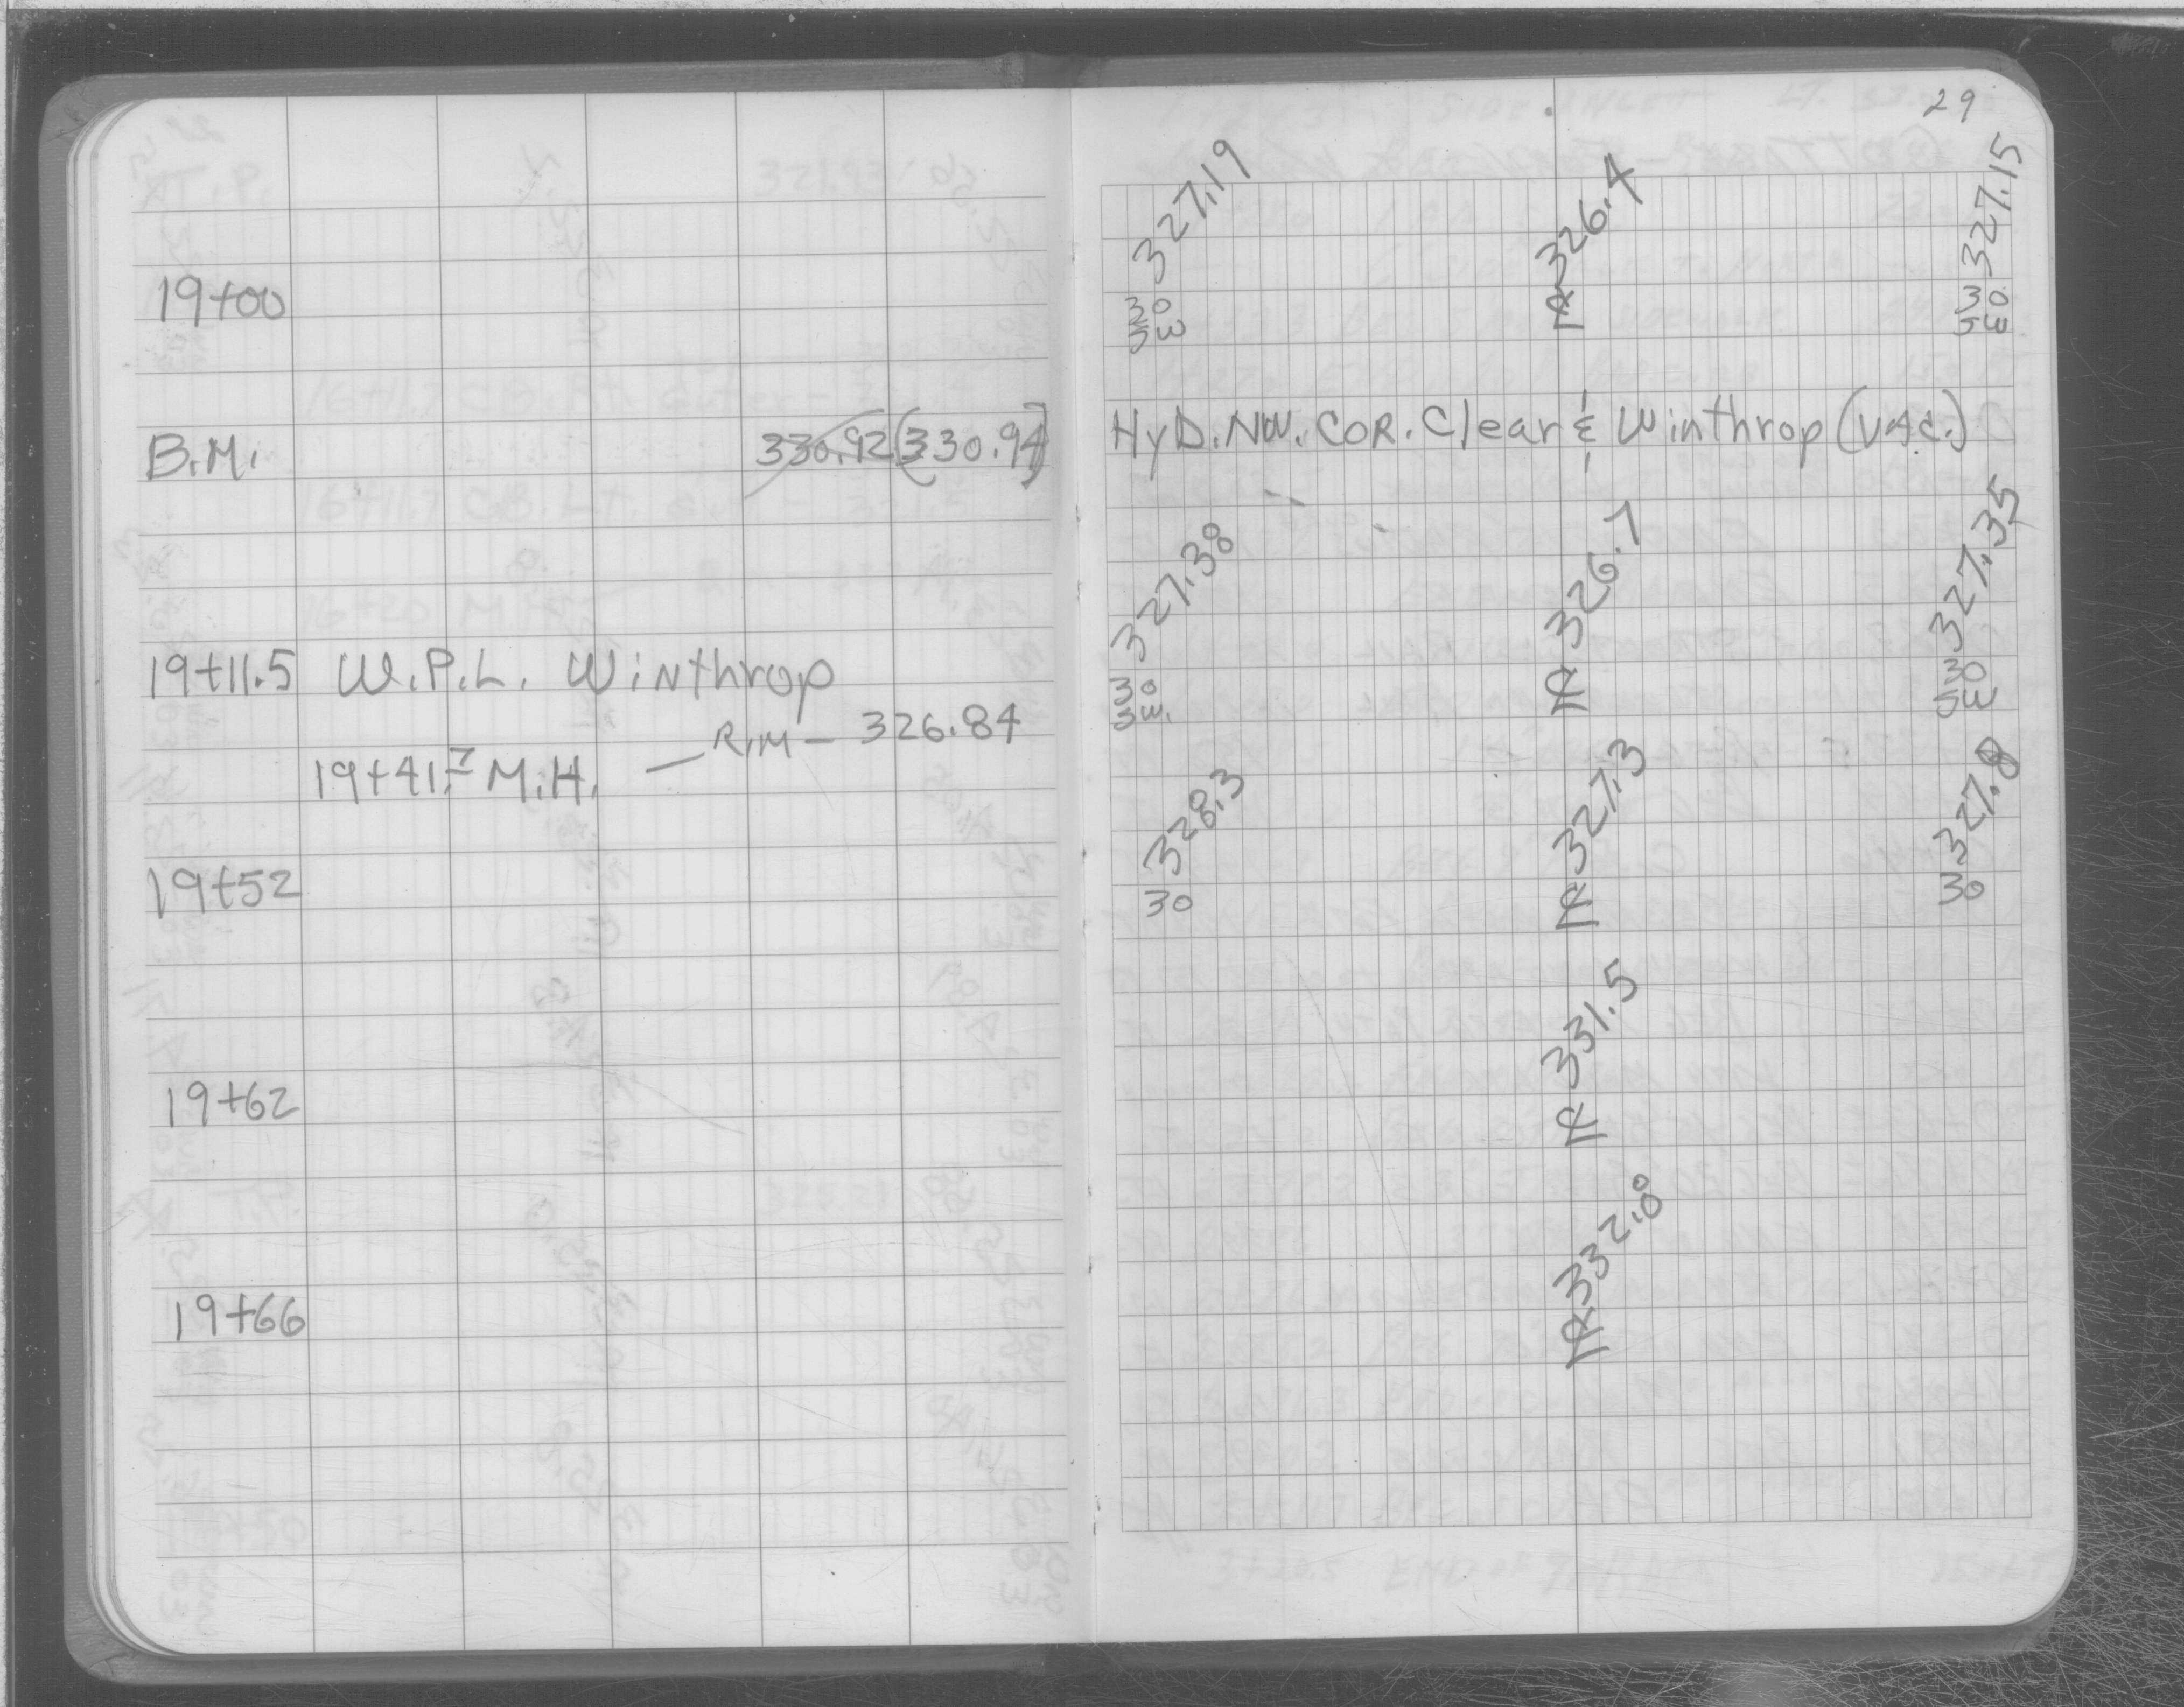 29
327.19 326.4 327.15
19+00 30 ℞ 30
SW SW
B.M. 330.92 (330.94) HyD. NW. COR. Clear & Winthrop (VAC.)
327.38 326.7 327.35
19+11.5 W.P.L. Winthrop 30 ℞ 30
SW. SW
RIM - 326.84
19+41.7 M.H. —
328.3 327.3 327.8
19+52 30 ℞ 30
331.5
19+62 ℞
332.8
19+66 ℞